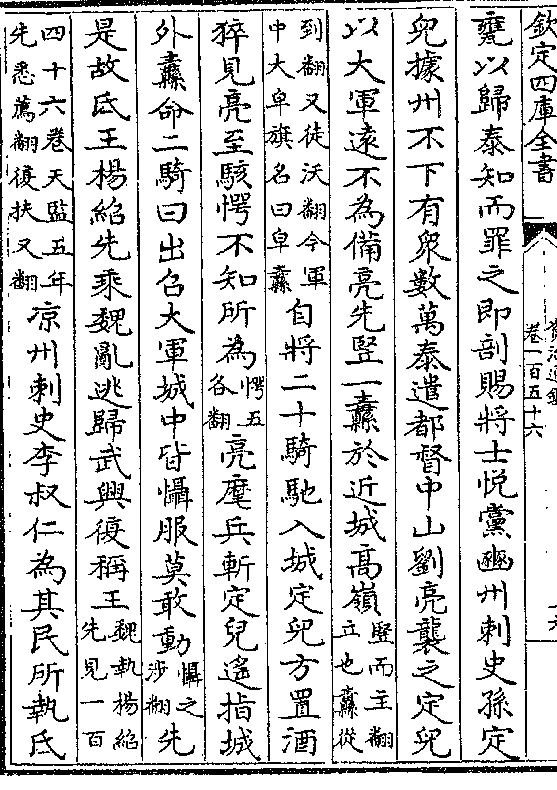 欽定四庫全書
資治通鑑
卷一百五十六
甕以歸泰知而罪之即剖賜將士悅黨豳州刺史孫定
兒據州不下有衆數萬泰遣都督中山劉亮襲之定兒
以大軍遠不為備亮先竪一纛於近城高嶺竪而主翻立也纛從
到翻又徒沃翻今軍中大皁旗名曰皁纛自將二十騎馳入城定兒方置酒
猝見亮至駭愕不知所為愕五各翻亮麾兵斬定兒遙指城
外纛命二騎曰出召大軍城中皆懾服莫敢動懾之涉翻先
是故氐王楊紹先乘魏亂逃歸武興復稱王魏執楊紹先見一百
四十六卷天監五年先悉薦翻復扶又翻凉州刺史李叔仁為其民所執氐